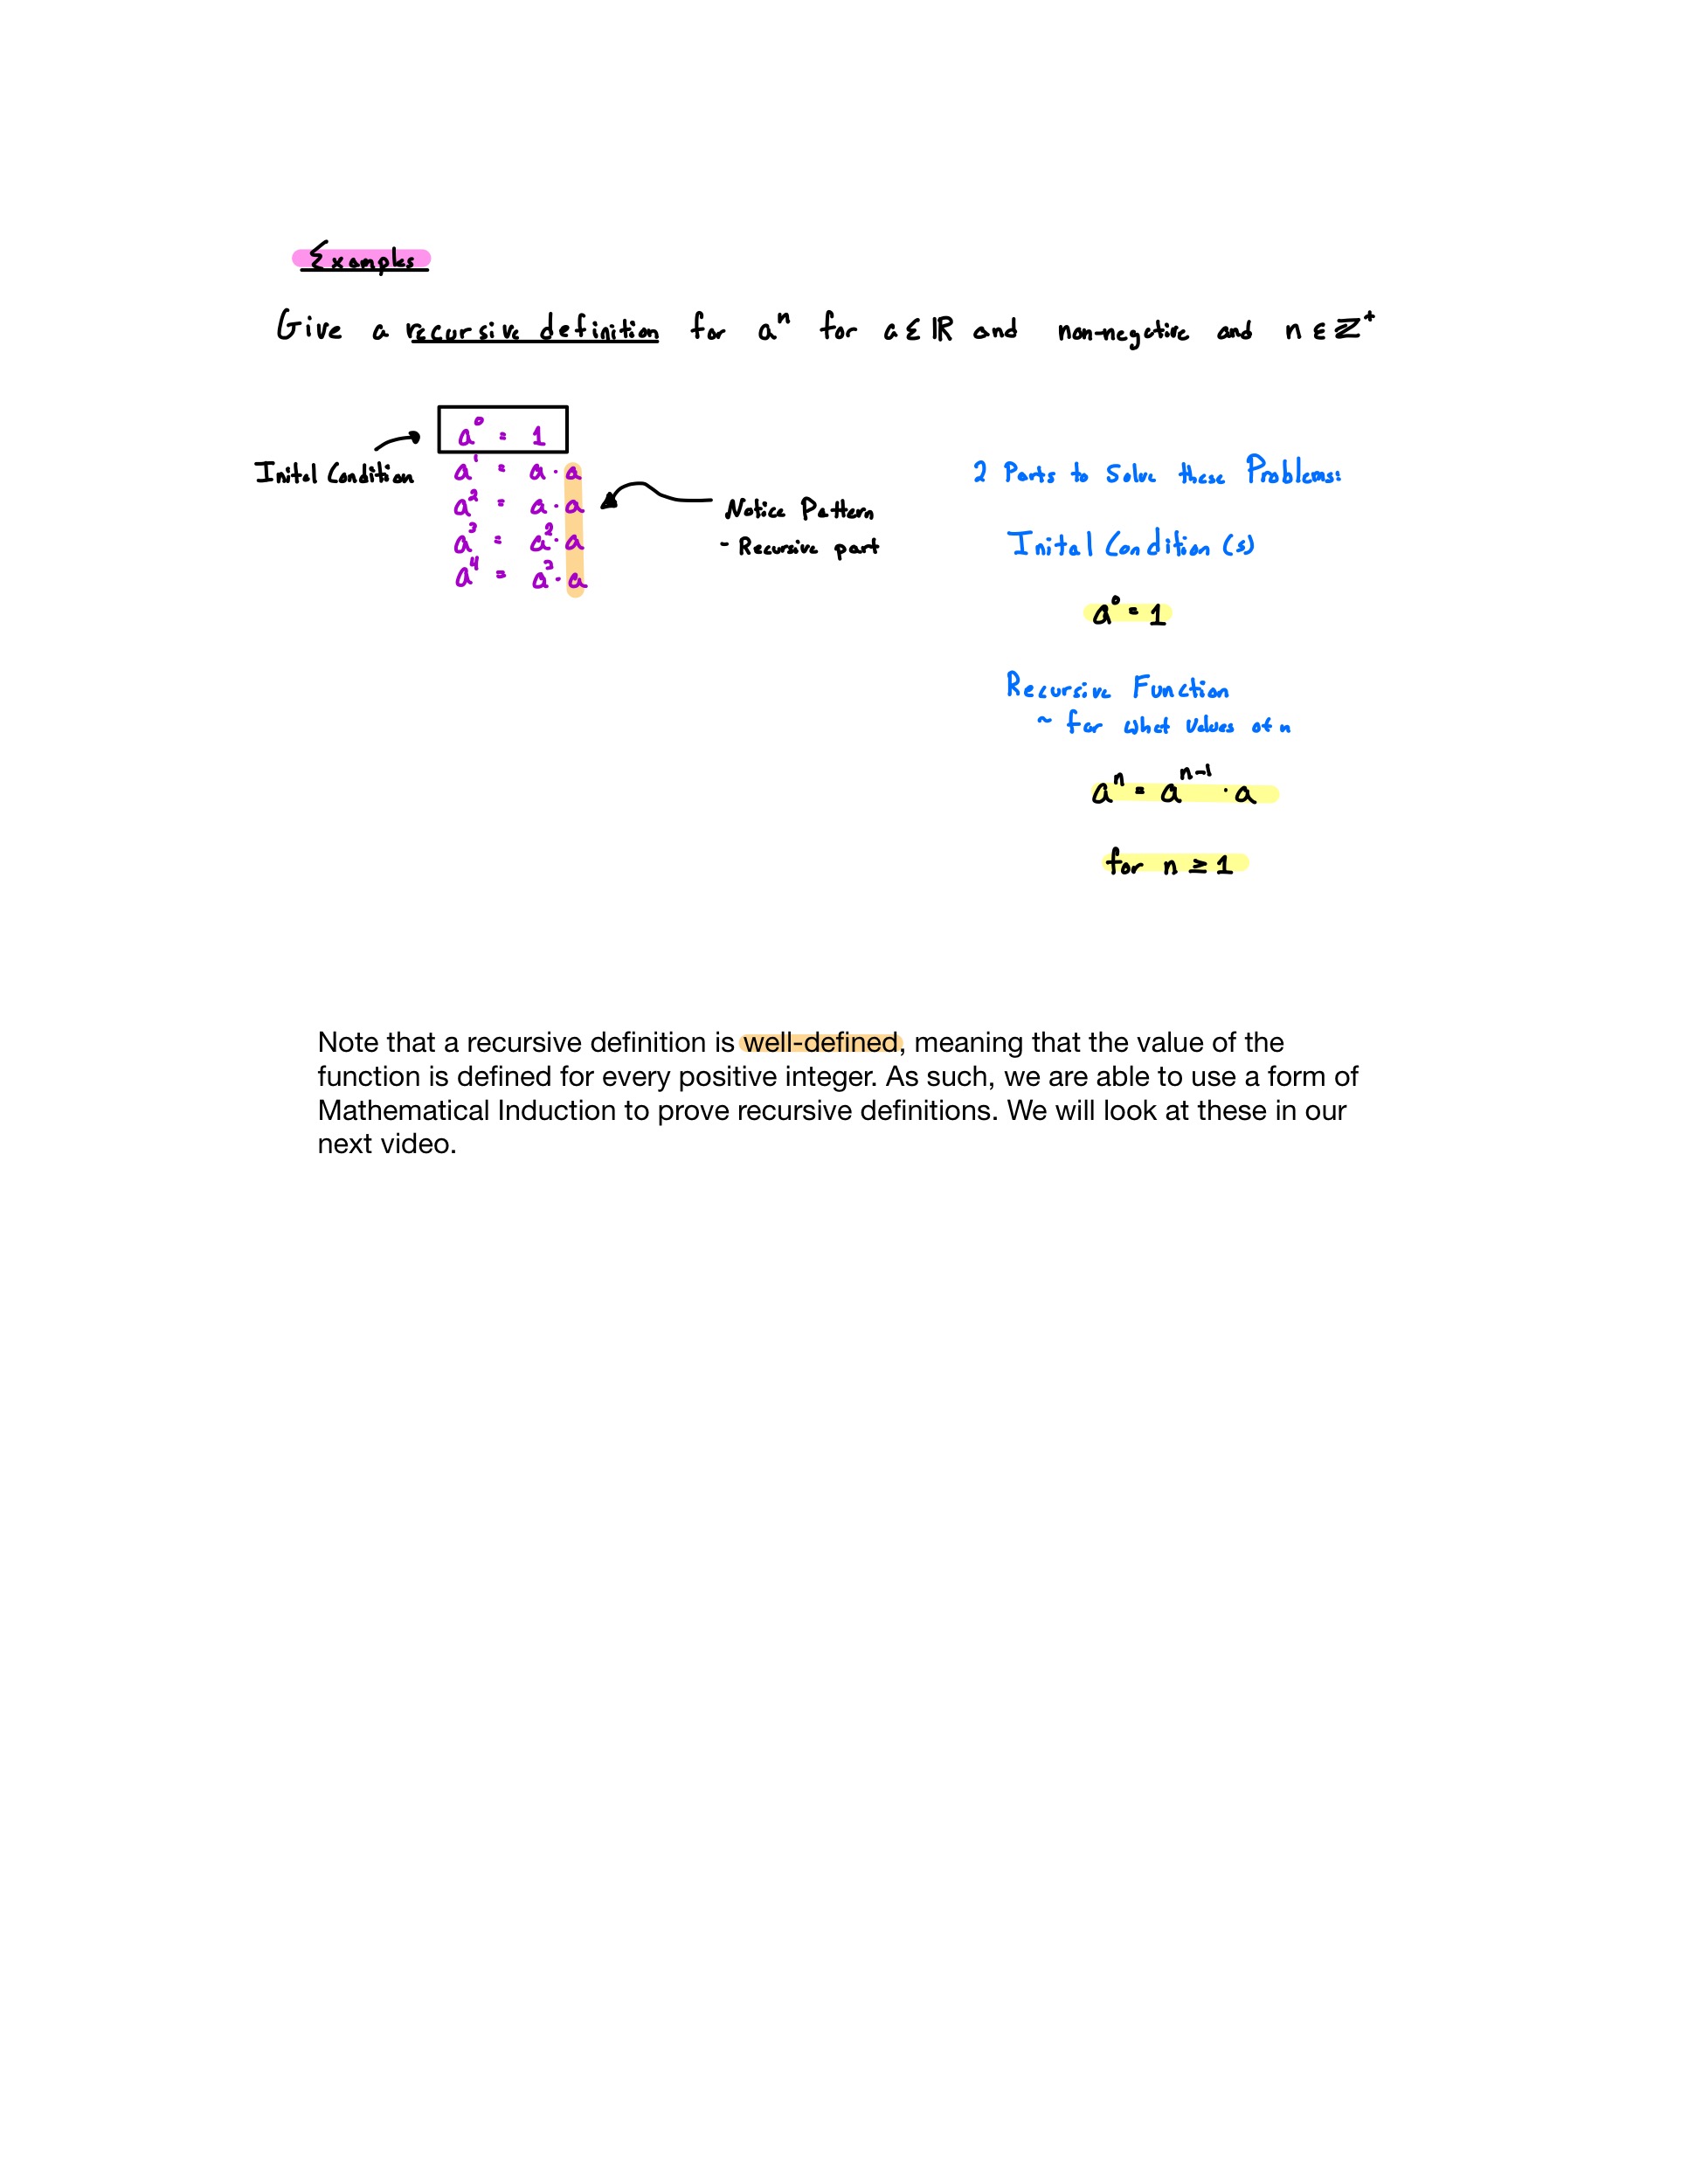 Examples
Give a recursive definition for aⁿ for a ∈ ℝ and non-negative and n ∈ ℤ⁺
a⁰ = 1
Inital Condition
a¹ = a · a
a² = a · a
a³ = a² · a
a⁴ = a³ · a
Notice Pattern
- Recursive part
2 Parts to Solve these Problems:
Inital Condition (s)
a⁰ = 1
Recursive Function
~ for what values of n
aⁿ = aⁿ⁻¹ · a
for n ≥ 1
Note that a recursive definition is well-defined, meaning that the value of the
function is defined for every positive integer. As such, we are able to use a form of
Mathematical Induction to prove recursive definitions. We will look at these in our
next video.